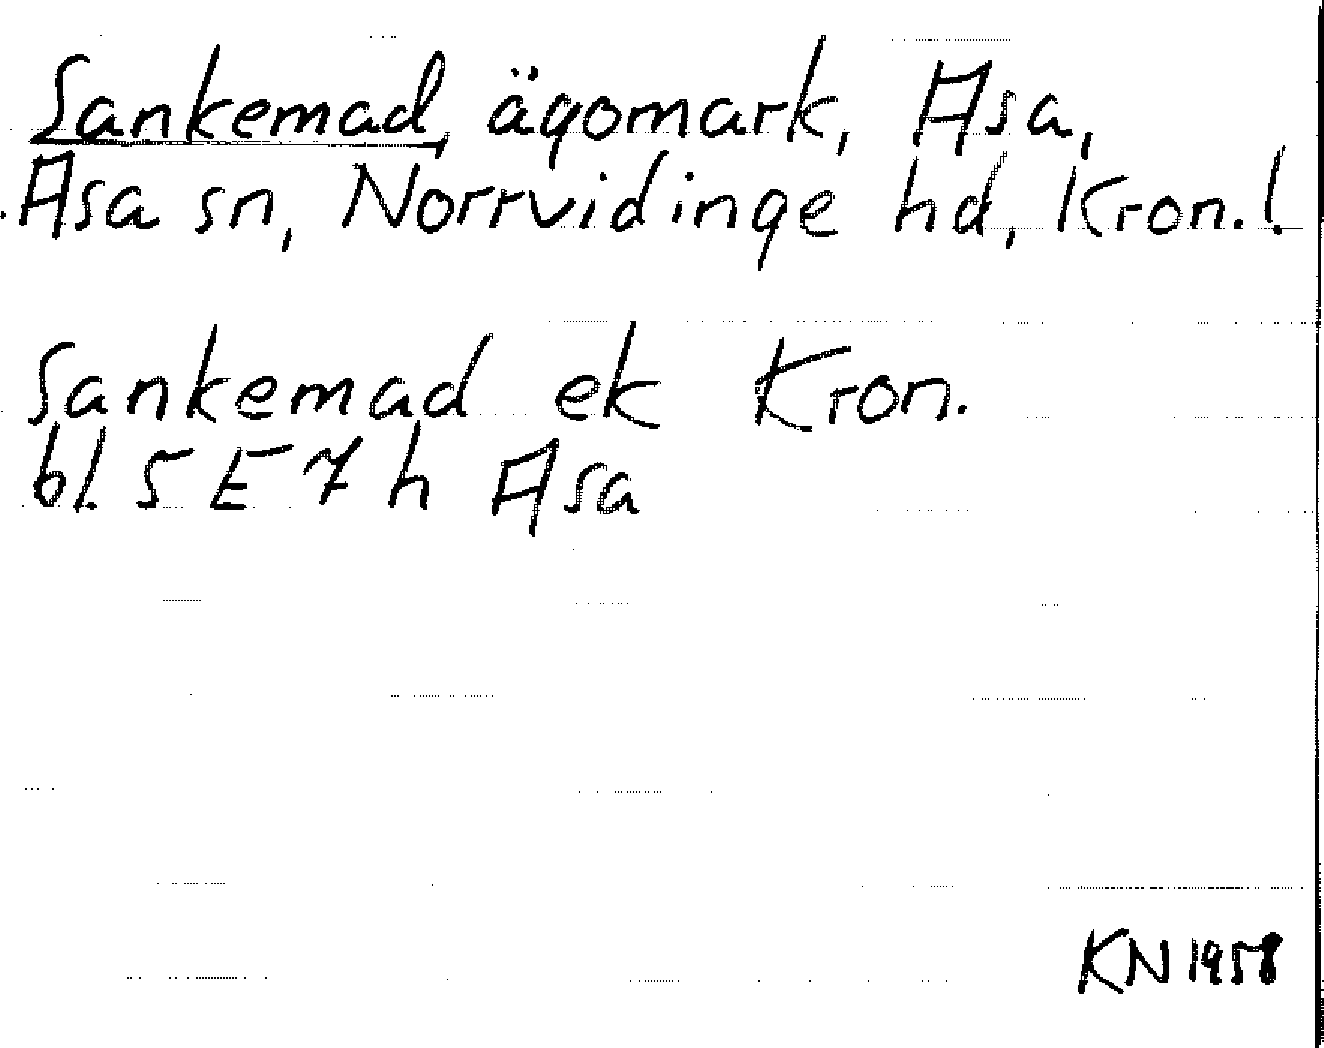 Sankemad, ägomark, Asa,
Asa sn, Norrvidinge hd, Kron. l.
Sankemad ek Kron.
bl. 5 E 7 h Asa
KN 1958